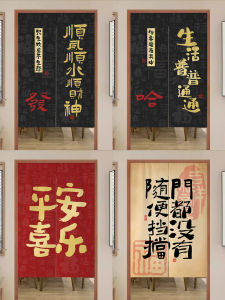 順風順水順財神
發
生活普普通通
哈
平安
喜乐
門都没有
隨便挡擋
福